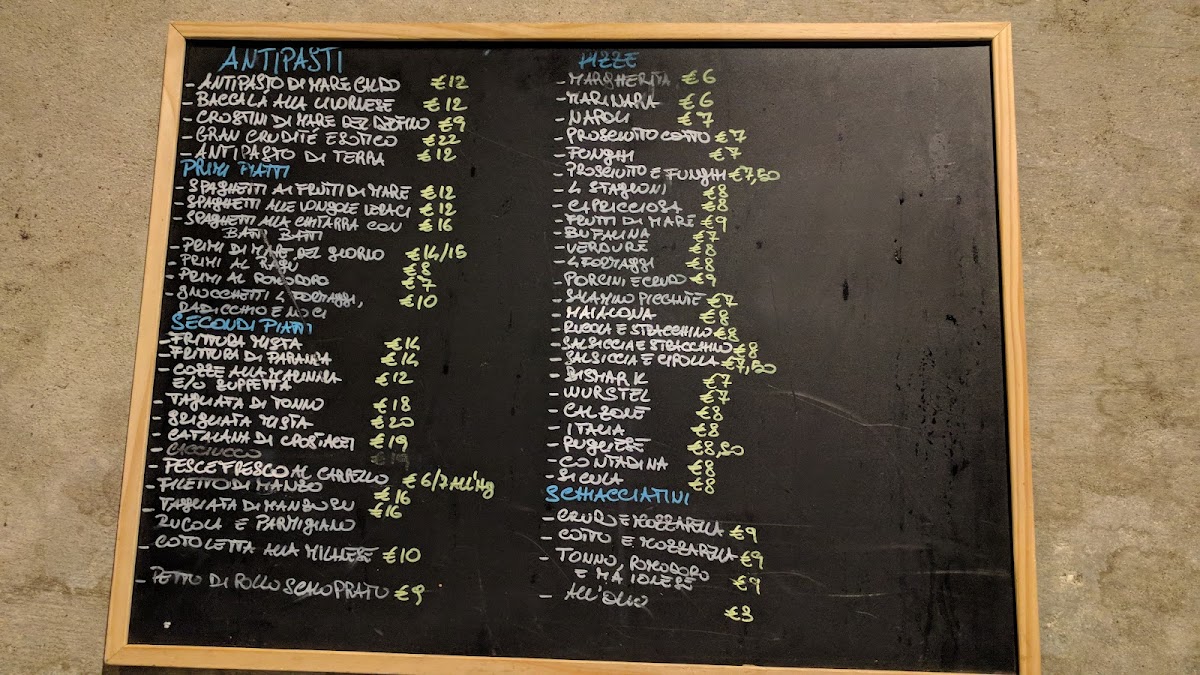 ANTIPASTI
- ANTIPASTO DI MARE CALDO €12
- BACCALÀ ALLA LIVORNESE €12
- CROSTINI DI MARE DEL DELFINO €9
- GRAN CRUDITÉ ESOTICO €22
- ANTIPASTO DI TERRA €12
PRIMI PIATTI
- SPAGHETTI AI FRUTTI DI MARE €12
- SPAGHETTI ALLE VONGOLE VERACI €12
- SPAGHETTI ALLA CHITARRA CON €16
BATTI BATTI
- PRIMI DI MARE DEL GIORNO €14/15
- PRIMI AL RAGU €8
- PRIMI AL POMODORO €7
- GNOCCHETTI 4 FORMAGGI, €10
RADICCHIO E NOCI
SECONDI PIATTI
- FRITTURA MISTA €14
- FRITTURA DI PARANZA €14
- COZZE ALLA MARINARA €12
E/O ZUPPETTA
- TAGLIATA DI TONNO €18
- GRIGLIATA MISTA €20
- CATALANA DI CROSTACEI €19
- CACCIUCCO
- PESCE FRESCO AL CARRELLO € 6/7 ALL'HG
- FILETTO DI MANZO €16
- TAGLIATA DI MANZO SU €16
RUCOLA E PARMIGIANO
- COTOLETTA ALLA MILANESE €10
- PETTO DI POLLO SCALOPPATO €9
PIZZE
- MARGHERITA €6
- MARINARA €6
- NAPOLI €7
- PROSCIUTTO COTTO €7
- FUNGHI €7
- PROSCIUTTO E FUNGHI €7,50
- 4 STAGIONI €8
- CAPRICCIOSA €8
- FRUTTI DI MARE €9
- BUFALINA €7
- VERDURE €8
- 4 FORMAGGI €8
- PORCINI E CRUDO €9
- SALAMINO PICCANTE €7
- MAIALONA €8
- RUCOLA E STRACCHINO €8
- SALSICCIA E STRACCHINO €8
- SALSICCIA E CIPOLLA €7,50
- BISMARK €7
- WURSTEL €7
- CALZONE €8
- ITALIA €8
- PUGLIESE €8,50
- CONTADINA €8
- SICULA €8
SCHIACCIATINI
- CRUDO E MOZZARELLA €9
- COTTO E MOZZARELLA €9
- TONNO, POMODORO
E MAIONESE €9
- ALL'OLIO €3